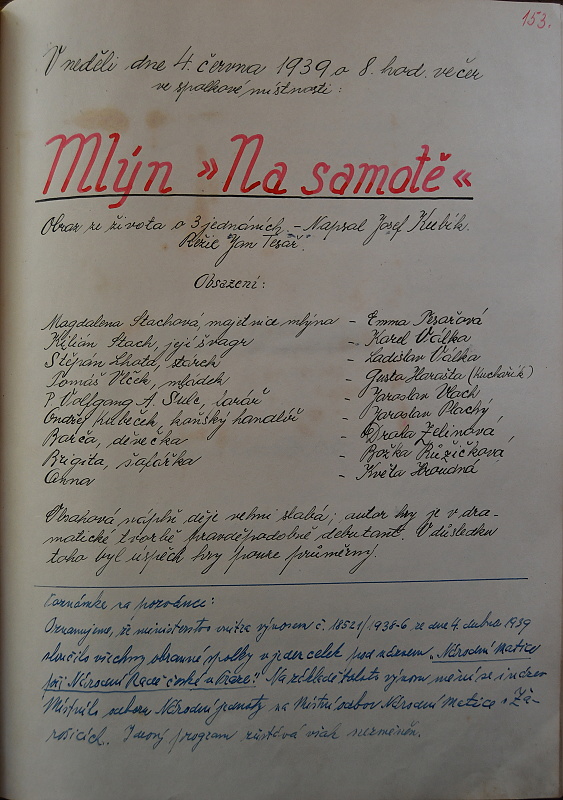 153.
V neděli dne 4. června 1939 o 8. hod. večer
ve spolkové místnosti:
Mlýn »Na samotě«
Obraz ze života o 3 jednáních. - Napsal Josef Kubík.
Režie "Jan Tesař".
Obsazení:
Magdalena Stachová, majitnice mlýna - Emma Tesařová
Kilian Stach, její švagr - Karel Válka
Štěpán Lhota, stárek - Ladislav Válka
Tomáš Vlček, mládek - Gusta Harašta (Kuchařík)
P. Wolfgang A. Šulc, farář - Jaroslav Vlach
Ondřej Kubeček, koňský handlíř - Jaroslav Plachý
Barča, děvečka - Draha Zelinová
Brigita, šafářka - Božka Růžičková
Anna - Květa Hroudná
Obsahová náplň děje velmi slabá; autor hry je v dra-
matické tvorbě pravděpodobně debutant. V důsledku
toho byl úspěch hry pouze průměrný.
Poznámka na pozvánce:
Oznamujeme, že ministerstvo vnitra výnosem č. 18521/1938-6 ze dne 4. dubna 1939
sloučilo všechny obranné spolky v jeden celek pod názvem „Národní matice
při Národní Radě české v Praze." Na základě tohoto výnosu mění se i název
Místního odboru Národní jednoty na Místní odbor Národní Matice v Ža-
rošicích. Jinový program zůstává však nezměněn.